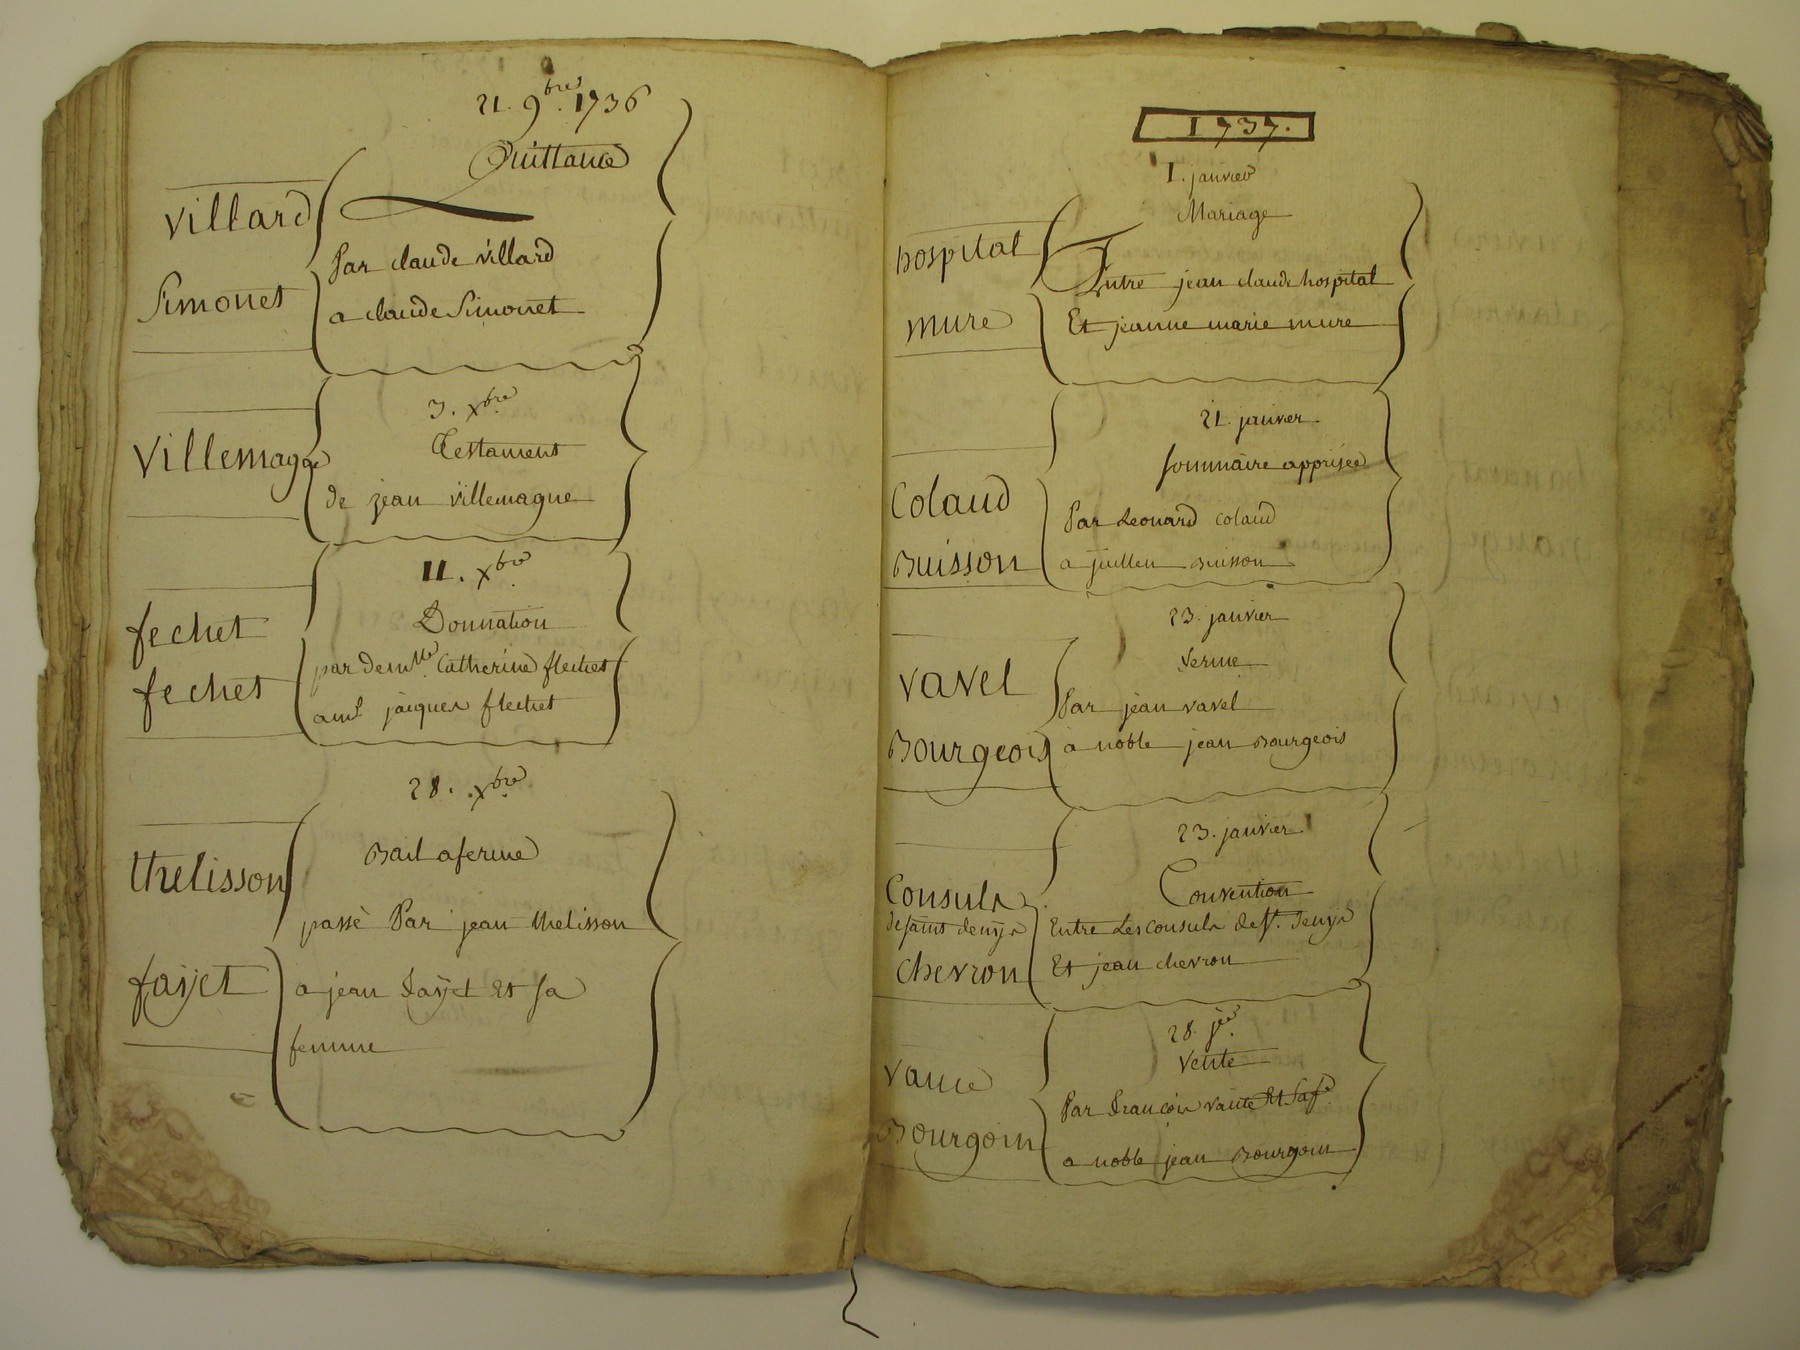 21. 9bre. 1736
Quittance
villard
Par claude villard
Simonet
a claude Simonet
3. xbre
Testament
villemagne
de jean villemagne
11. xbre
Donnation
fechet
par demlle Catherine flechet
fechet
a mr jacques flechet
28. xbre
Bail aferme
thelisson
passé Par jean thelisson
fayet
a jean fayet Et sa
femme
1737.
1. janvier
Mariage
hospital
Entre jean claude hospital
mure
Et jeanne marie mure
21. janvier
sommaire apprisée
Colaud
Par Leonard colaud
Buisson
a juillen Buisson
23. janvier
ferme
vavel
Par jean vavel
Bourgeois
à noble jean Bourgeois
23. janvier
Convention
Consuls
de saint denys
Entre Les consuls de st. denys
Chevron
Et jean chevron
28. jer
vente
vance
Par francois vante Et sa fe
Bourgoin
a noble jean Bourgoin